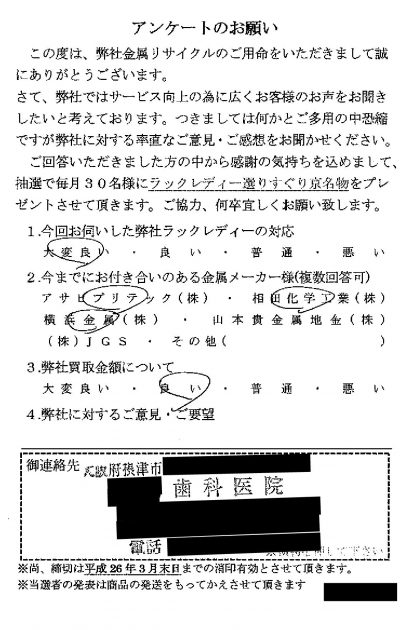 アンケートのお願い
この度は、弊社金属リサイクルのご用命をいただきまして誠
にありがとうございます。
さて、弊社ではサービス向上の為に広くお客様のお声をお聞き
したいと考えております。つきましては何かとご多用の中恐縮
ですが弊社に対する率直なご意見・ご感想をお聞かせください。
ご回答いただきました方の中から感謝の気持ちを込めまして、
抽選で毎月30名様にラックレディー選りすぐり京名物をプレ
ゼントさせて頂きます。ご協力、何卒宜しくお願い致します。
1.今回お伺いした弊社ラックレディーの対応
大変良い ・ 良い ・ 普通 ・ 悪い
2.今までにお付き合いのある金属メーカー様(複数回答可)
アサヒプリテック(株) ・ 相田化学工業(株)
横浜金属(株) ・ 山本貴金属地金(株)
(株)JGS ・ その他( )
3.弊社買取金額について
大変良い ・ 良い ・ 普通 ・ 悪い
4.弊社に対するご意見・ご要望
御連絡先 大阪府摂津市
歯科医院
電話
して下さい
※尚、締切は平成26年3月末日までの消印有効とさせて頂きます。
※当選者の発表は商品の発送をもってかえさせて頂きます